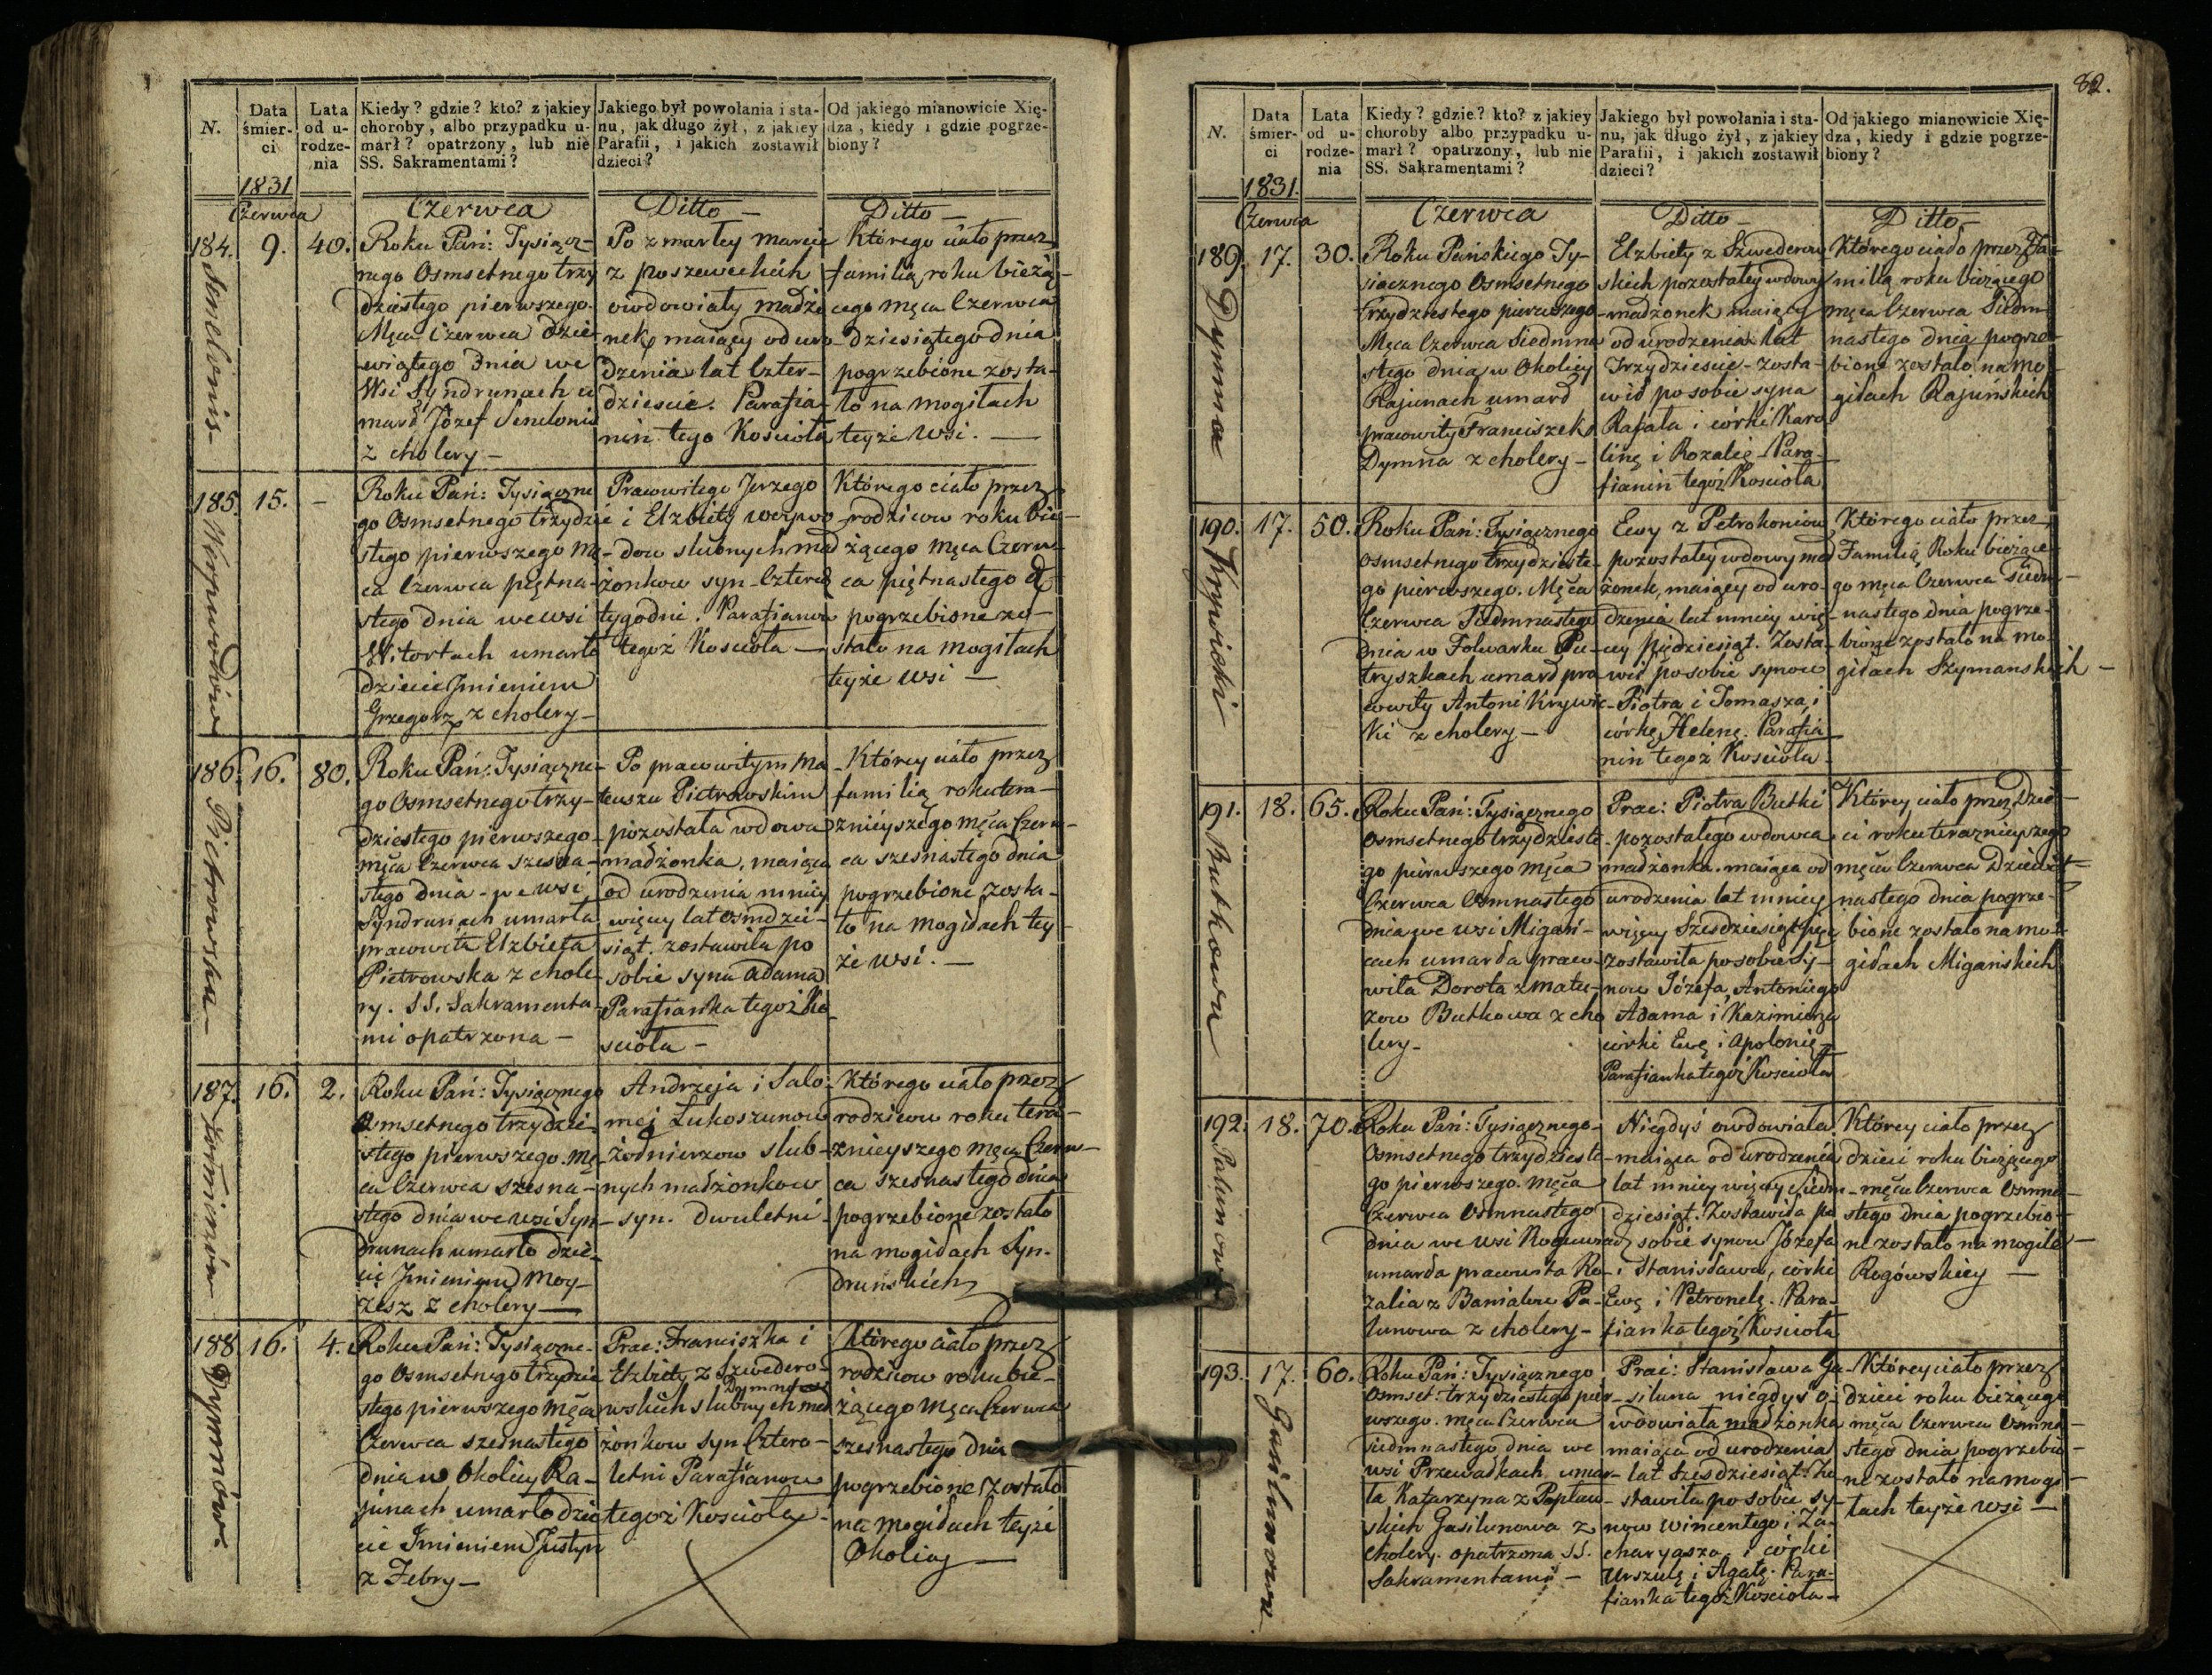 N.
Data śmier- ci
Lata od u- rodze- nia
Kiedy? gdzie? kto? z jakiey
choroby, albo przypadku u-
marł? opatrzony, lub nie
SS. Sakramentami?
Jakiego był powołania i sta-
nu, jak długo żył, z jakiey
Parafii, i jakich zostawił
dzieci?
Od jakiego mianowicie Xię-
dza, kiedy i gdzie pogrze-
biony?
1831
Czerwca
Czerwca
Ditto —
Ditto —
184.
9.
40.
Roku Pań: Tysiącz-
nego Osmsetnego trzy
dziestego pierwszego.
Męca Czerwca dzie-
wiątego dnia we
Wsi Syndrunach u
marł Józef
z cholery —
Po zmarłey Marcie
z
owdowiały małżo
nek, maiący od uro
dzenia lat Czter-
dzieście. Parafia-
nin tego Kościoła
Którego ciało przez
familią roku bieżą-
cego Męca Czerwca
dziesiątego dnia
pogrzebione zosta-
ło na mogiłach
teyże wsi. —
185.
15.
-
Roku Pań: Tysiączne
go Osmsetnego trzydzie
stego pierwszego Mę-
ca Czerwca piętna-
stego dnia we wsi
Witortach umarło
dziecie Imieniem
Grzegorz z cholery —
Pracowitego Jerzego
i Elzbiety Worpwo
dow slubnych mał
żonkow syn Cztero
tygodni. Parafianow
tegoż Kościoła —
Którego ciało przez
rodzicow roku bie-
żącego Męca Czerw-
ca piętnastego d
pogrzebione zo-
stało na mogiłach
teyże wsi —
186.
Pietrowska —
16.
80.
Roku Pań: Tysiączne-
go Osmsetnego trzy-
dziestego pierwszego
męca Czerwca szesna-
stego dnia - we wsi
Syndrunach umarła
pracowita Elzbieta
Pietrowska z chole
ry. SS. Sakramenta-
mi opatrzona —
Po pracowitym Ma
teuszu Pietrowskim
pozostała wdowa
małżonka, maiąca
od urodzenia mniey
więcey lat Osmdzie-
siąt. zostawiła po
sobie syna Adama
Parafianka tegoż Ko
scioła —
Którey ciało przez
familią roku tera-
znieyszego męca Czerw-
ca szesnastego dnia
pogrzebione zosta-
ło na mogiłach tey
że wsi. —
187.
16.
2.
Roku Pań: Tysiącznego
Osmsetnego trzydzie-
stego pierwszego. mę-
ca Czerwca szesna-
stego dnia we wsi Syn-
drunach umarło dzie-
cie Imieniem Moy-
zesz z cholery —
Andrzeja i Salo-
mei Łukoszunow
żołnierzow slub-
nych małżonkow
syn. dwuletni
Którego ciało przez
rodzicow roku tera-
znieyszego męca Czerw-
ca szesnastego dnia
pogrzebione zostało
na mogiłach Syn-
druńskich
188
Dymnów.
16.
4.
Roku Pań: Tysiączne-
go Osmsetnego trzydzie
stego pierwszego Męca
Czerwca szesnastego
dnia w Okolicy Ra-
junach umarło dzie
cie Imieniem Justyn
z Febry —
Prac: Franciszka i
Elzbiety z Szwedero-
wskich slubnych mał
żonkow syn Cztero-
letni Parafianow
tegoż Kościoła.
Którego ciało przez
rodzicow roku bie-
żącego Męca Czerwca
szesnastego dnia
pogrzebione zostało
na mogiłach teyże
Okolicy —
82.
N.
Data śmier- ci
Lata od u- rodze- nia
Kiedy? gdzie? kto? z jakiey
choroby albo przypadku u-
marł? opatrzony, lub nie
SS. Sakramentami?
Jakiego był powołania i sta-
nu, jak długo żył, z jakiey
Parafii, i jakich zostawił
dzieci?
Od jakiego mianowicie Xię-
dza, kiedy i gdzie pogrze-
biony?
1831.
Czerwca
Czerwca
Ditto —
Ditto —
189.
Dymna
17.
30.
Roku Pańskiego Ty-
siącznego Osmsetnego
trzydziestego pierwszego
Męca Czerwca Siedmna
stego dnia w Okolicy
Rajunach umarł
pracowity Franciszek
Dymna z cholery —
Elzbiety z Szwederow
skich pozostałey wdowy
małżonek maiący
od urodzenia lat
Trzydzieście - zosta-
wił po sobie syna
Rafała i córki Karo
linę i Rozalię - Para-
fianin tegoż Kościoła
Którego ciało przez Fa-
milią roku bieżącego
męca Czerwca Siedm-
nastego dnia pogrze-
bione zostało na mo-
giłach Rajuńskich
190.
Krywicki
17.
50.
Roku Pań: Tysiącznego
Osmsetnego trzydzieste-
go pierwszego. Męca
Czerwca Siedmnastego
dnia w Folwarku Pie-
tryszkach umarł pra-
cowity Antoni Krywic-
ki z cholery —
Ewy z Petrokoniow
pozostałey wdowy mał
żonek, maiący od uro-
dzenia lat mniey wię-
cey pięćdziesiąt. Zosta-
wił po sobie synow
Piotra i Tomasza i
córkę Helenę. Parafia
nin tegoż Kościoła
Którego ciało przez
Familią Roku bieżące-
go męca Czerwca Siedm-
nastego dnia pogrze-
bione zostało na mo-
giłach Szymanskich —
191.
Butkowa
18.
65.
Roku Pań: Tysiącznego
Osmsetnego trzydzieste
go pierwszego męca
Czerwca Osmnastego
dnia we wsi Migań-
cach umarła praco-
wita Dorota z Matu-
zow Butkowa z cho
lery —
Prac: Piotra Butki
pozostałego wdowca
małżonka. maiąca od
urodzenia lat mniey
więcey Szesdziesiąt pięć
zostawiła po sobie Sy-
now Józefa, Antoniego
Adama i Kazimierza
córki Ewę i Apolonię
Parafianka tegoż Kościoła
Którey ciało przez Dzie-
ci roku teraznieyszego
męca Czerwca Dziewięt-
nastego dnia pogrze-
bione zostało na mo-
giłach Migańskich
192.
18.
70.
Roku Pań: Tysiącznego
Osmsetnego trzydzieste-
go pierwszego. męca
Czerwca Osmnastego
dnia we wsi
umarła pracowita Ro-
zalia z Banialow Pa-
lunowa z cholery —
Niegdyś owdowiała
maiąca od urodzenia
lat mniey więcey Siedm-
dziesiąt. Zostawiła po
sobie synow Józefa
i Stanisława, córki
Ewę i Petronelę. Para-
fianka tegoż Kościoła
Którey ciało przez
dzieci roku bieżącego
męca Czerwca Osmna-
stego dnia pogrzebio-
ne zostało na mogile
Rogówskiey —
193.
Gasilunowa
17.
60.
Roku Pań: Tysiącznego
Osmset: trzydziestego pier-
wszego. męca Czerwca
siedmnastego dnia we
wsi Przewałkach umar-
ła Katarzyna z Popław-
skich Gasilunowa z
cholery. opatrzona SS.
Sakramentami —
Prac: Stanisława Ga-
siluna niegdyś o-
wdowiała małżonka
maiąca od urodzenia
lat Szesdziesiąt. Zo-
stawiła po sobie sy-
now Wincentego i Za-
charyasza, i córki
Urszulę i Agatę. Para-
fianka tegoż Kościoła —
Którey ciało przez
dzieci roku bieżącego
męca Czerwca Osmna-
stego dnia pogrzebio-
ne zostało na mogi-
łach teyże wsi —